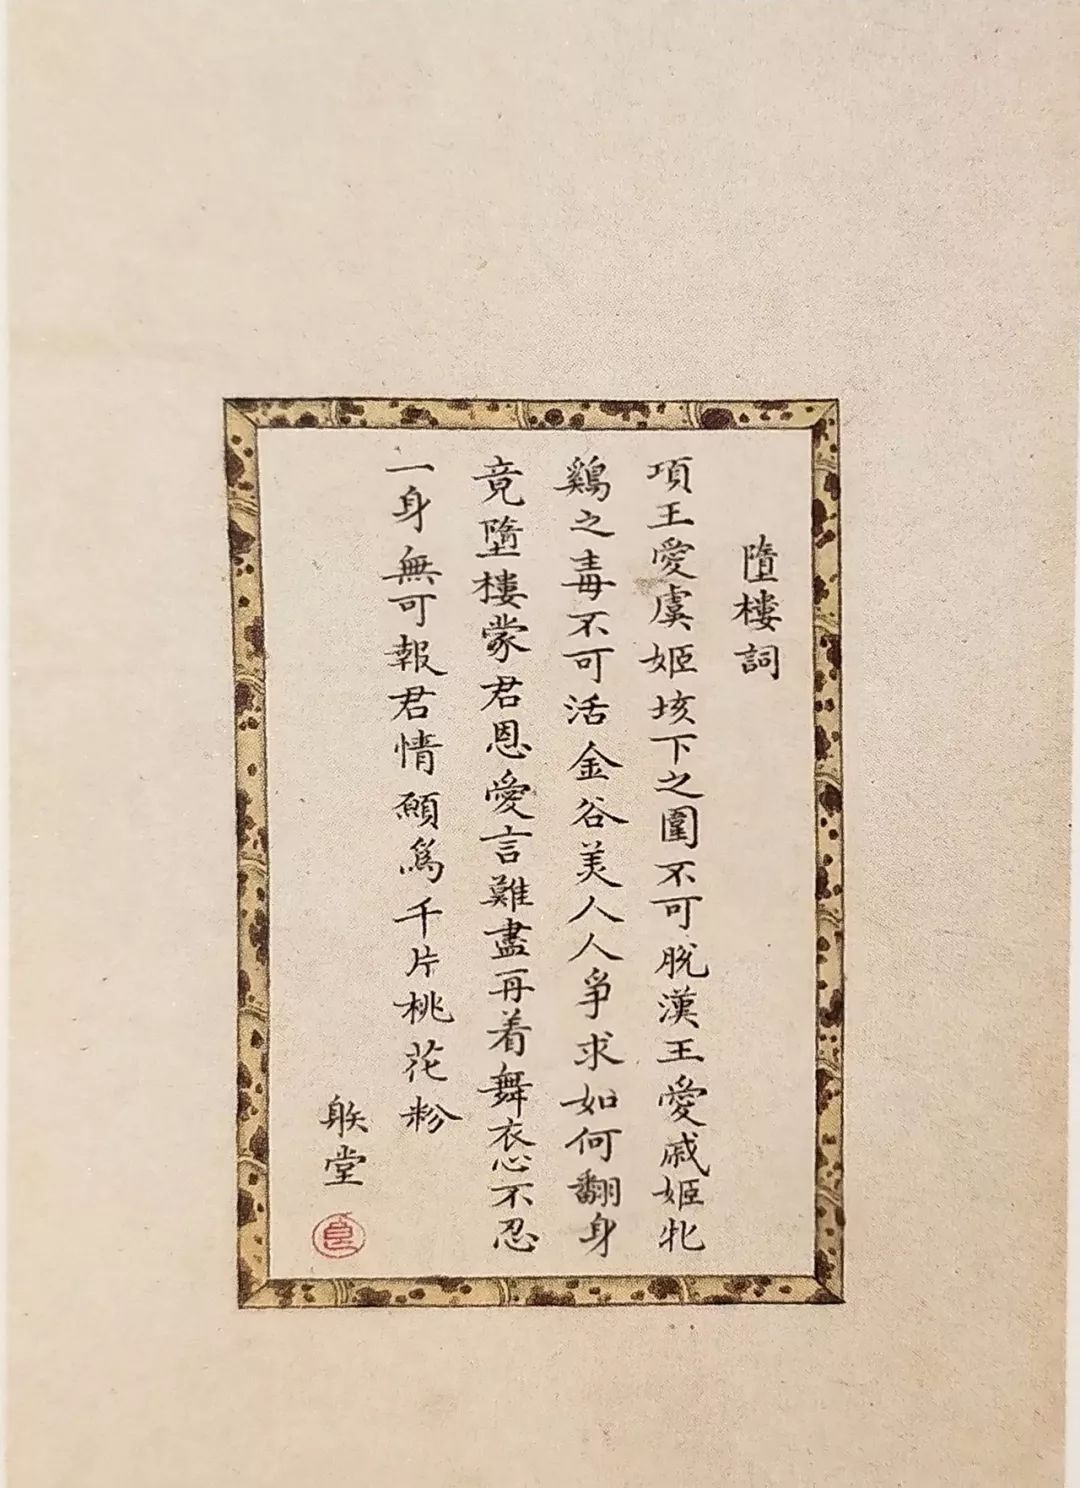 墮樓詞
項王愛虞姬垓下之圍不可脫漢王愛戚姬牝
鷄之毒不可活金谷美人人爭求如何翻身
竟墮樓蒙君恩愛言難盡再着舞衣心不忍
一身無可報君情願爲千片桃花粉
躾堂